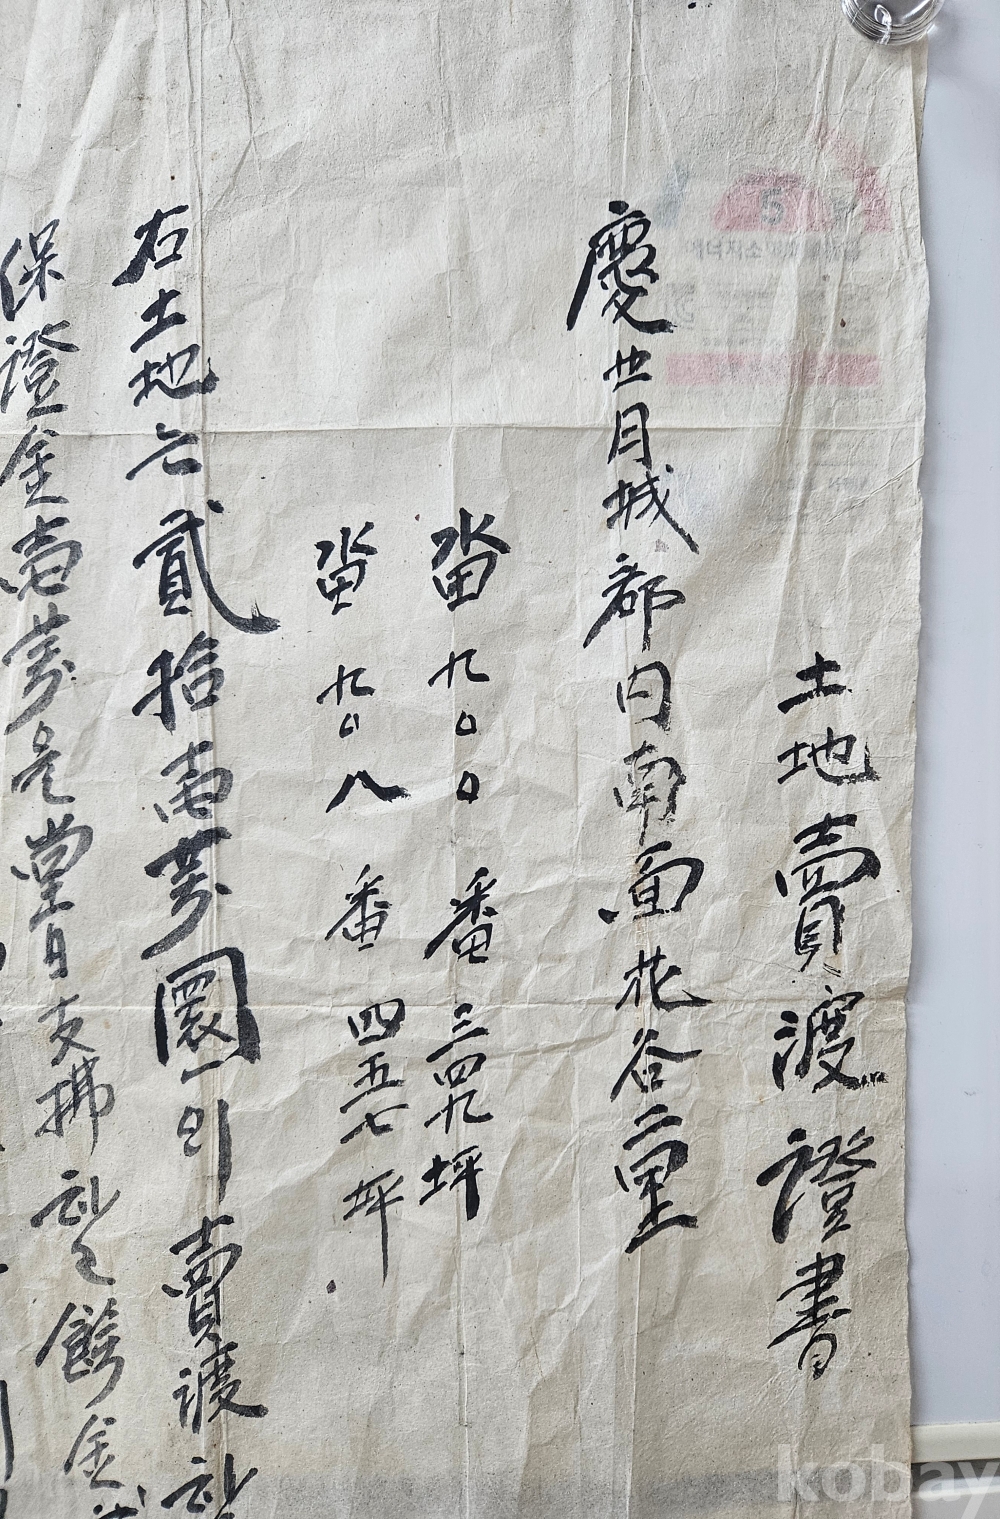 土地賣渡證書
慶北月城郡內南面花谷二里
畓 九〇〇番 三四九坪
畓 九〇八番 四五七坪
右土地는 貳拾壹萬圜의 賣渡하
保證金壹萬은 當日支拂하고 餘金
kobay